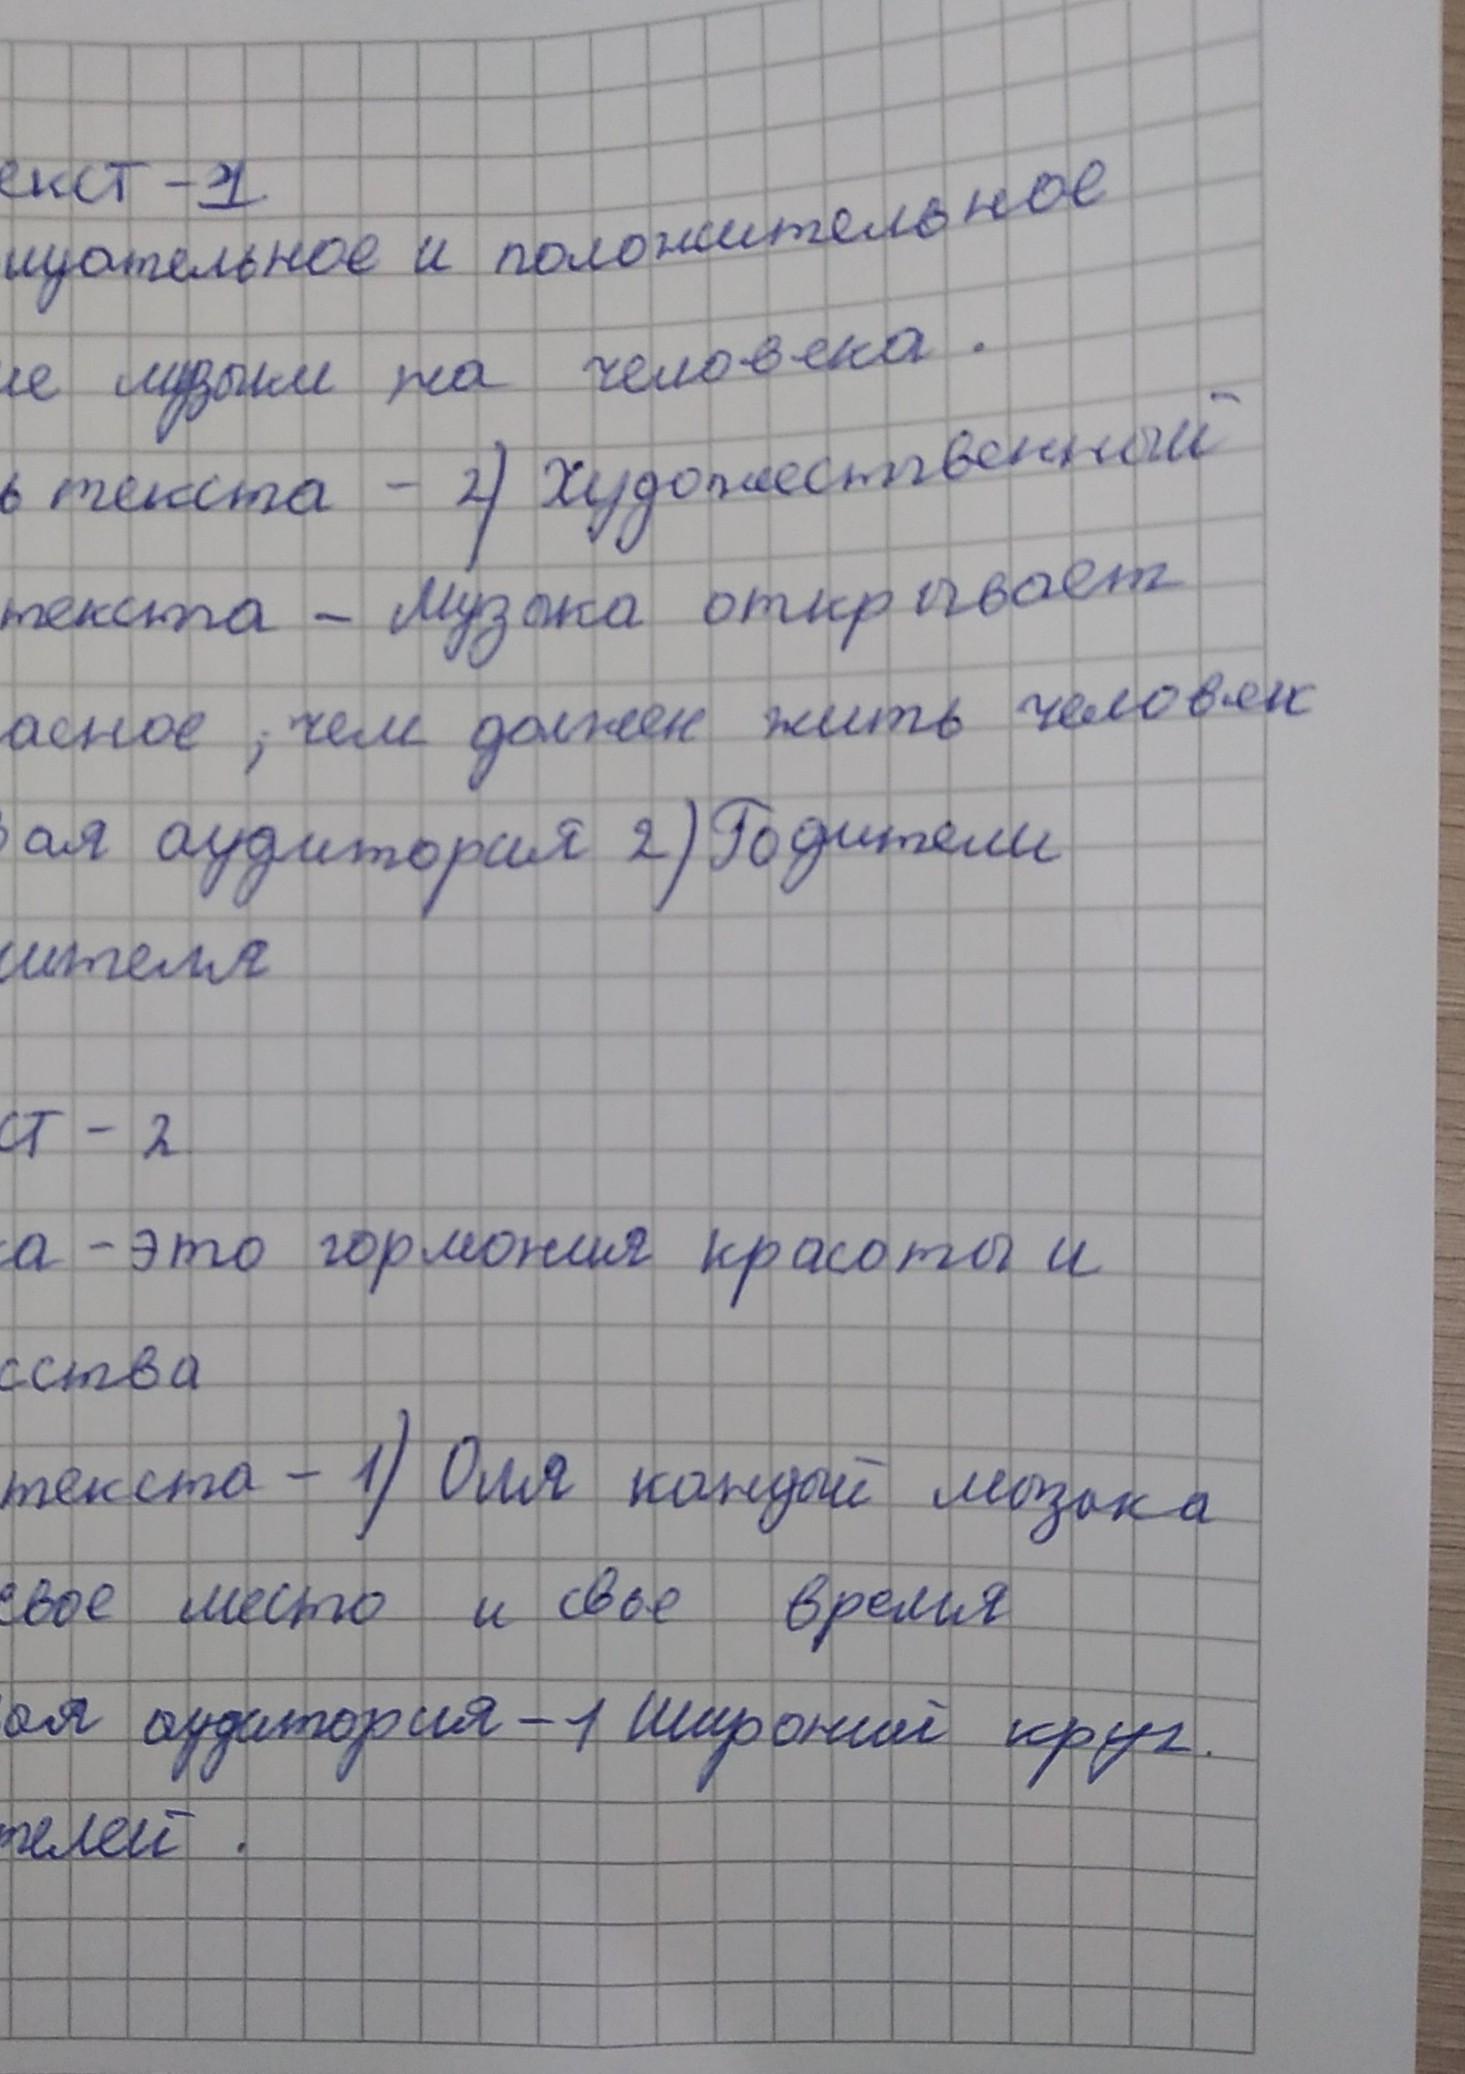 екст - 1
ицательное и положительное
ие музыки на человека.
ь текста - 2) Художественный
текста - Музыка открывает
асное, чем должен жить человек
вая аудитория 2) Родители
ителя
ст - 2
ка - это гормония красоты и
сства
текста - 1) Оля каждый мызыка
свое место и свое время
вая аудитория - 1 Широкий круг.
телей.